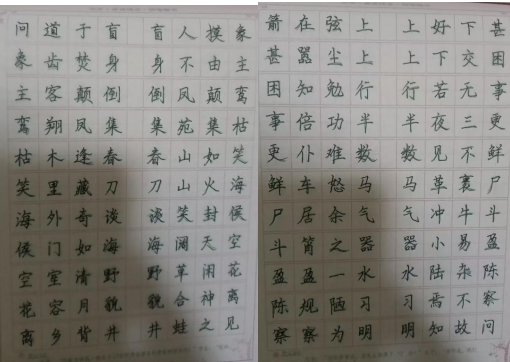 问道于盲 盲人摸象
象齿焚身 身不由主
主客颠倒 倒凤颠鸾
鸾翔凤集 集苑集枯
枯木逢春 春山如笑
笑里藏刀 刀山火海
海外奇谈 谈笑封侯
侯门如海 海阔天空
空室清野 野草闲花
花容月貌 貌合神离
离乡背井 井蛙之见
箭在弦上 上好下甚
甚嚣尘上 上下交困
困知勉行 行若无事
事倍功半 半夜三更
更仆难数 数见不鲜
鲜车怒马 马革裹尸
尸居余气 气冲牛斗
斗筲之器 器小易盈
盈盈一水 水陆杂陈
陈规陋习 习焉不察
察察为明 明知故问